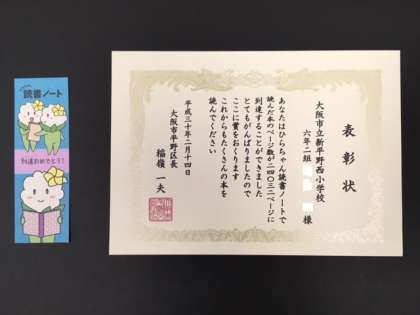 読書ノート
到達おめでとう!
表彰状
大阪市立新平野西小学校
六年二組
様
あなたはひらちゃん読書ノートで
読んだ本のページ数が二四〇三二ページに
到達することができました
とてもがんばりましたので
ここに賞をおくります
これからもたくさんの本を
読んでください
平成三十年二月十四日
大阪市平野区長
稲嶺 一夫